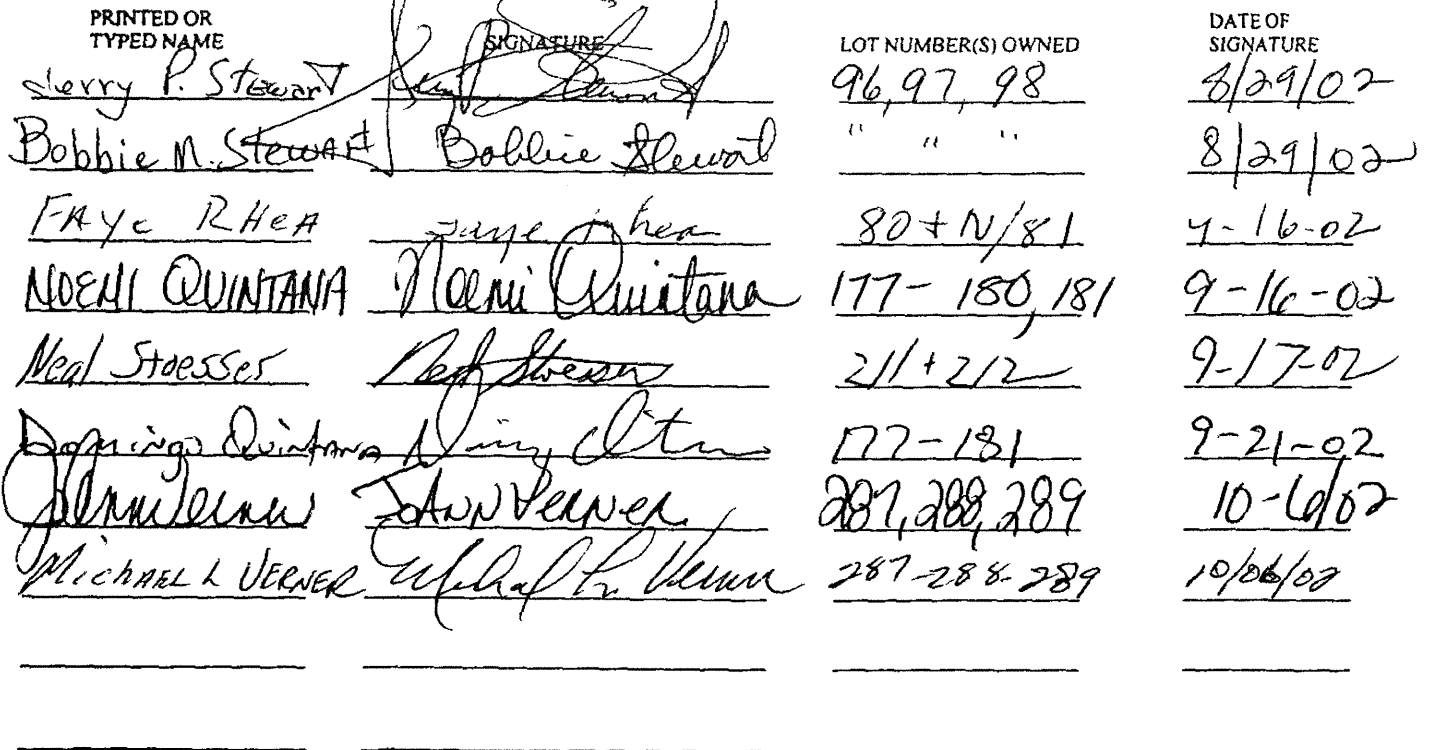 PRINTED OR TYPED NAME SIGNATURE LOT NUMBER(S) OWNED DATE OF SIGNATURE
Jerry P. Stewart Jerry P. Stewart 96, 97, 98 8/29/02
Bobbie M. Stewart Bobbie Stewart " " " 8/29/02
FAYe RHeA Faye Rhea 80 + N/81 9-16-02
NOEMI QUINTANA Noemi Quintana 177- 180, 181 9-16-02
Neal Stoesser Neal Stoesser 211 + 212 9-17-02
Domingo Quintana 177-181 9-21-02
JoAnn Verner JoANN VERNER 287, 288, 289 10-6/02
MichAEL L VERNER Michael L. Verner 287-288-289 10/06/02